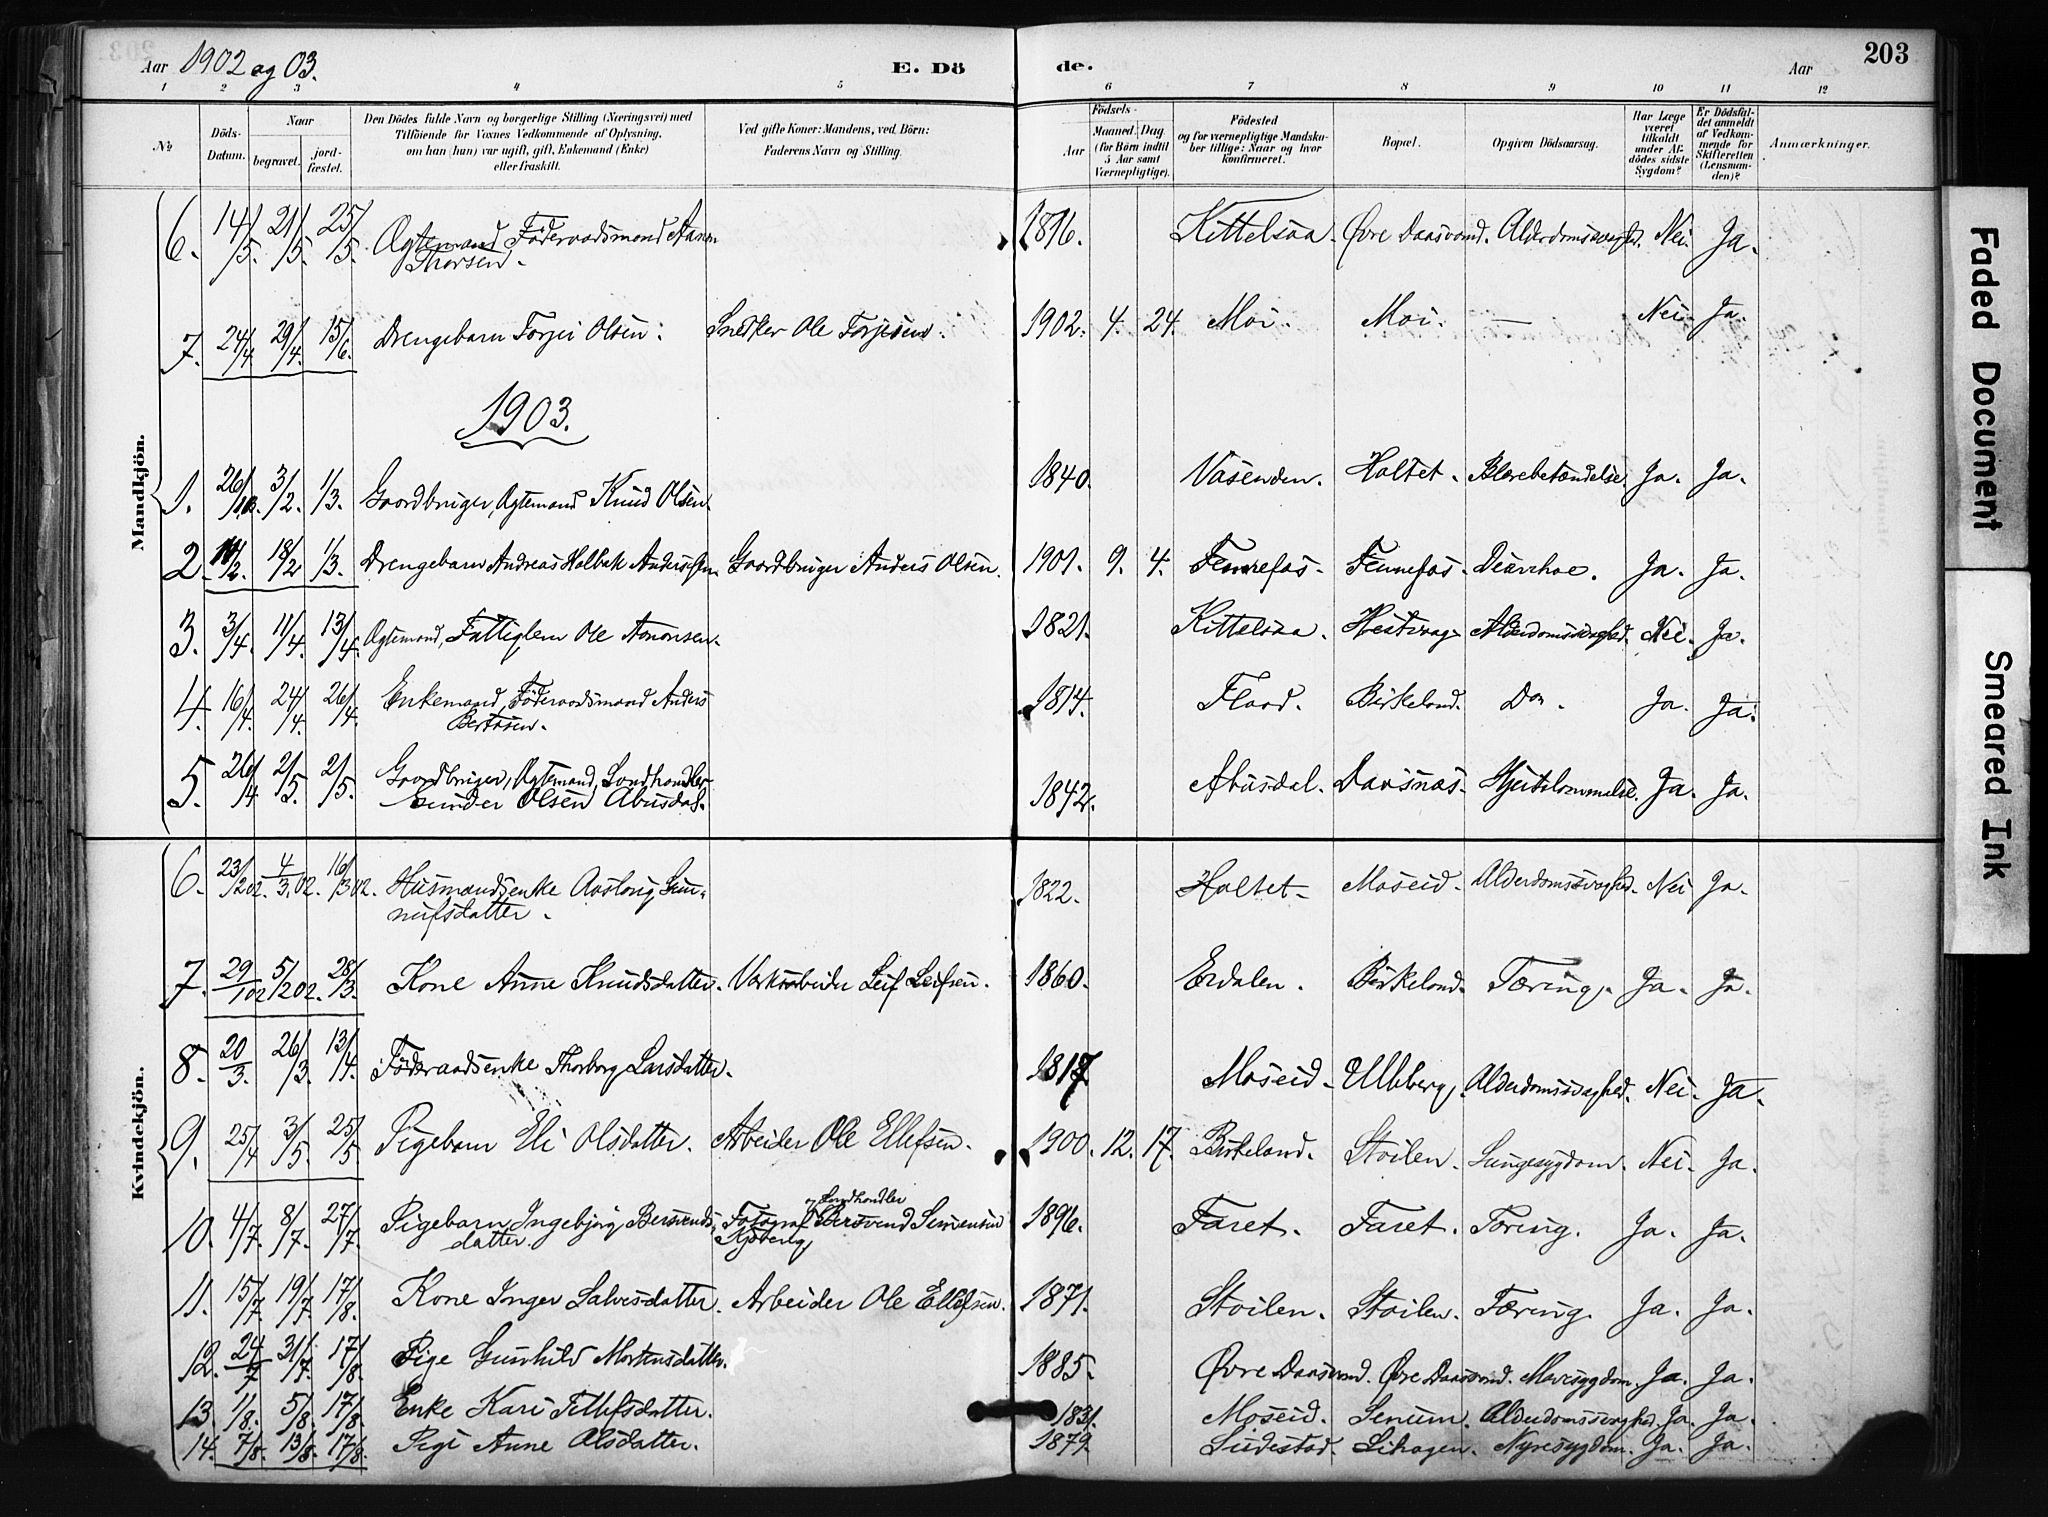 Aar 1902 og 03.
E. Dö de.
Aar
203
1 2 3 4 5 6 7 8 9 10 11 12
№
Döds-Datum.
Naar
begravet.
jord-fæstet.
Den Dödes fulde Navn og borgerlige Stilling (Næringsvei) med
Tilföiende for Voxnes Vedkommende af Oplysning,
om han (hun) var ugift, gift, Enkemand (Enke)
eller fraskilt.
Ved gifte Koner: Mandens, ved. Börn:
Faderens Navn og Stilling.
Födsels-
Aar
Maaned. Dag.
(for Börn indtil
5 Aar samt
Værnepligtige).
Födested
og for værnepligtige Mandska-
ber tillige: Naar og hvor
Konfirmeret.
Bopæl.
Opgiven Dödsaarsag.
Har Læge
været
tilkaldt
under Af-
dödes sidste
Sygdom?
Er Dödsfal-
det anmeldt
af Vedkom-
mende for
Skifteretten
(Lensman-
den)?
Anmærkninger.
Mandkjön.
6. 14/5. 21/5. 25/5. Ægtemand Föderaadsmand Aanon Thorsen. 1816. Kittelsaa. Øvre Daasvand. Alderdomssvaghed. Nei. Ja.
7. 24/4. 29/4. 15/6. Drengebarn Torjei Olsen. Snedker Ole Torjesen. 1902. 4. 24. Moi. Moi. — Nei. Ja.
1903.
1. 26/1. 3/2. 1/3. Gaardbruger, Ægtemand Knud Olsen. 1840. Vasenden. Holtet. Blærebetændelse. Ja. Ja.
2. 11/2. 18/2 1/3. Drengebarn Andreas Holbæk Andersen. Gaardbruger Anders Olsen. 1901. 9. 4. Fennefos. Fennefos. Diarrhoe. Ja. Ja.
3. 3/4. 11/4. 13/4. Ægtemand, Fattiglem Ole Aanonsen. 1821. Kittelsaa. Hestvaag. Alderdomssvaghed. Nei. Ja.
4. 16/4. 24/4. 26/4. Enkemand, Föderaadsmand Anders Bertosen. 1814. Flaad. Birkeland. Do. Ja. Ja.
5. 26/4 2/5. 2/5. Gaardbruger, Ægtemand, Landhandler Gunder Olsen Abusdal. 1842. Abusdal. Daasnæs. Hjertelammelse. Ja. Ja.
Kvindekjön.
6. 23/2 02. 4/3. 02. 16/3 02. Husmandsenke Aaslaug Gun-
nufsdatter. 1822. Holtet. Moseid. Alderdomssvaghed. Nei Ja.
7. 29/1 02 5/2 02. 28/3. Kone Anne Knudsdatter. Verksarbeider Leif Leifsen. 1860. Erdalen. Birkeland. Tæring. Ja. Ja.
8. 20/3. 26/3. 13/4. Föderaadsenke Thorborg Larsdatter. 1817 Moseid. Uleberg. Alderdomssvaghed. Nei. Ja.
9. 25/4 3/5. 25/5. Pigebarn Eli Olsdatter. Arbeider Ole Ellefsen. 1900. 12. 17. Birkeland. Stoilen. Lungesygdom. Nei. Ja.
10. 4/7. 8/7. 27/7. Pigebarn Ingebjörg Bersvends-
datter. Fotograf og Landhandler Bersvend Simonsen Kjöberg 1896. Faret. Faret. Tæring. Ja. Ja.
11. 15/7. 19/7. 17/8. Kone Inger Salvesdatter. Arbeider Ole Ellefsen. 1871. Stoilen. Stoilen. Tæring. Ja. Ja.
12. 24/7 31/7. 17/8. Pige Gunhild Mortensdatter. 1885. Øvre Daasvand. Øvre Daasvand. Mavesygdom. Ja. Ja.
13. 1/8. 5/8. 17/8. Enke Kari Tellefsdatter. 1831. Moseid. Senum. Alderdomssvaghed. Ja. Ja.
14. 7/8. 13/8. 17/8. Pige Anne Olsdatter. 1879. Lidestad. Lihagen. Nyresygdom. Ja. Ja.
Faded Document
Smeared Ink